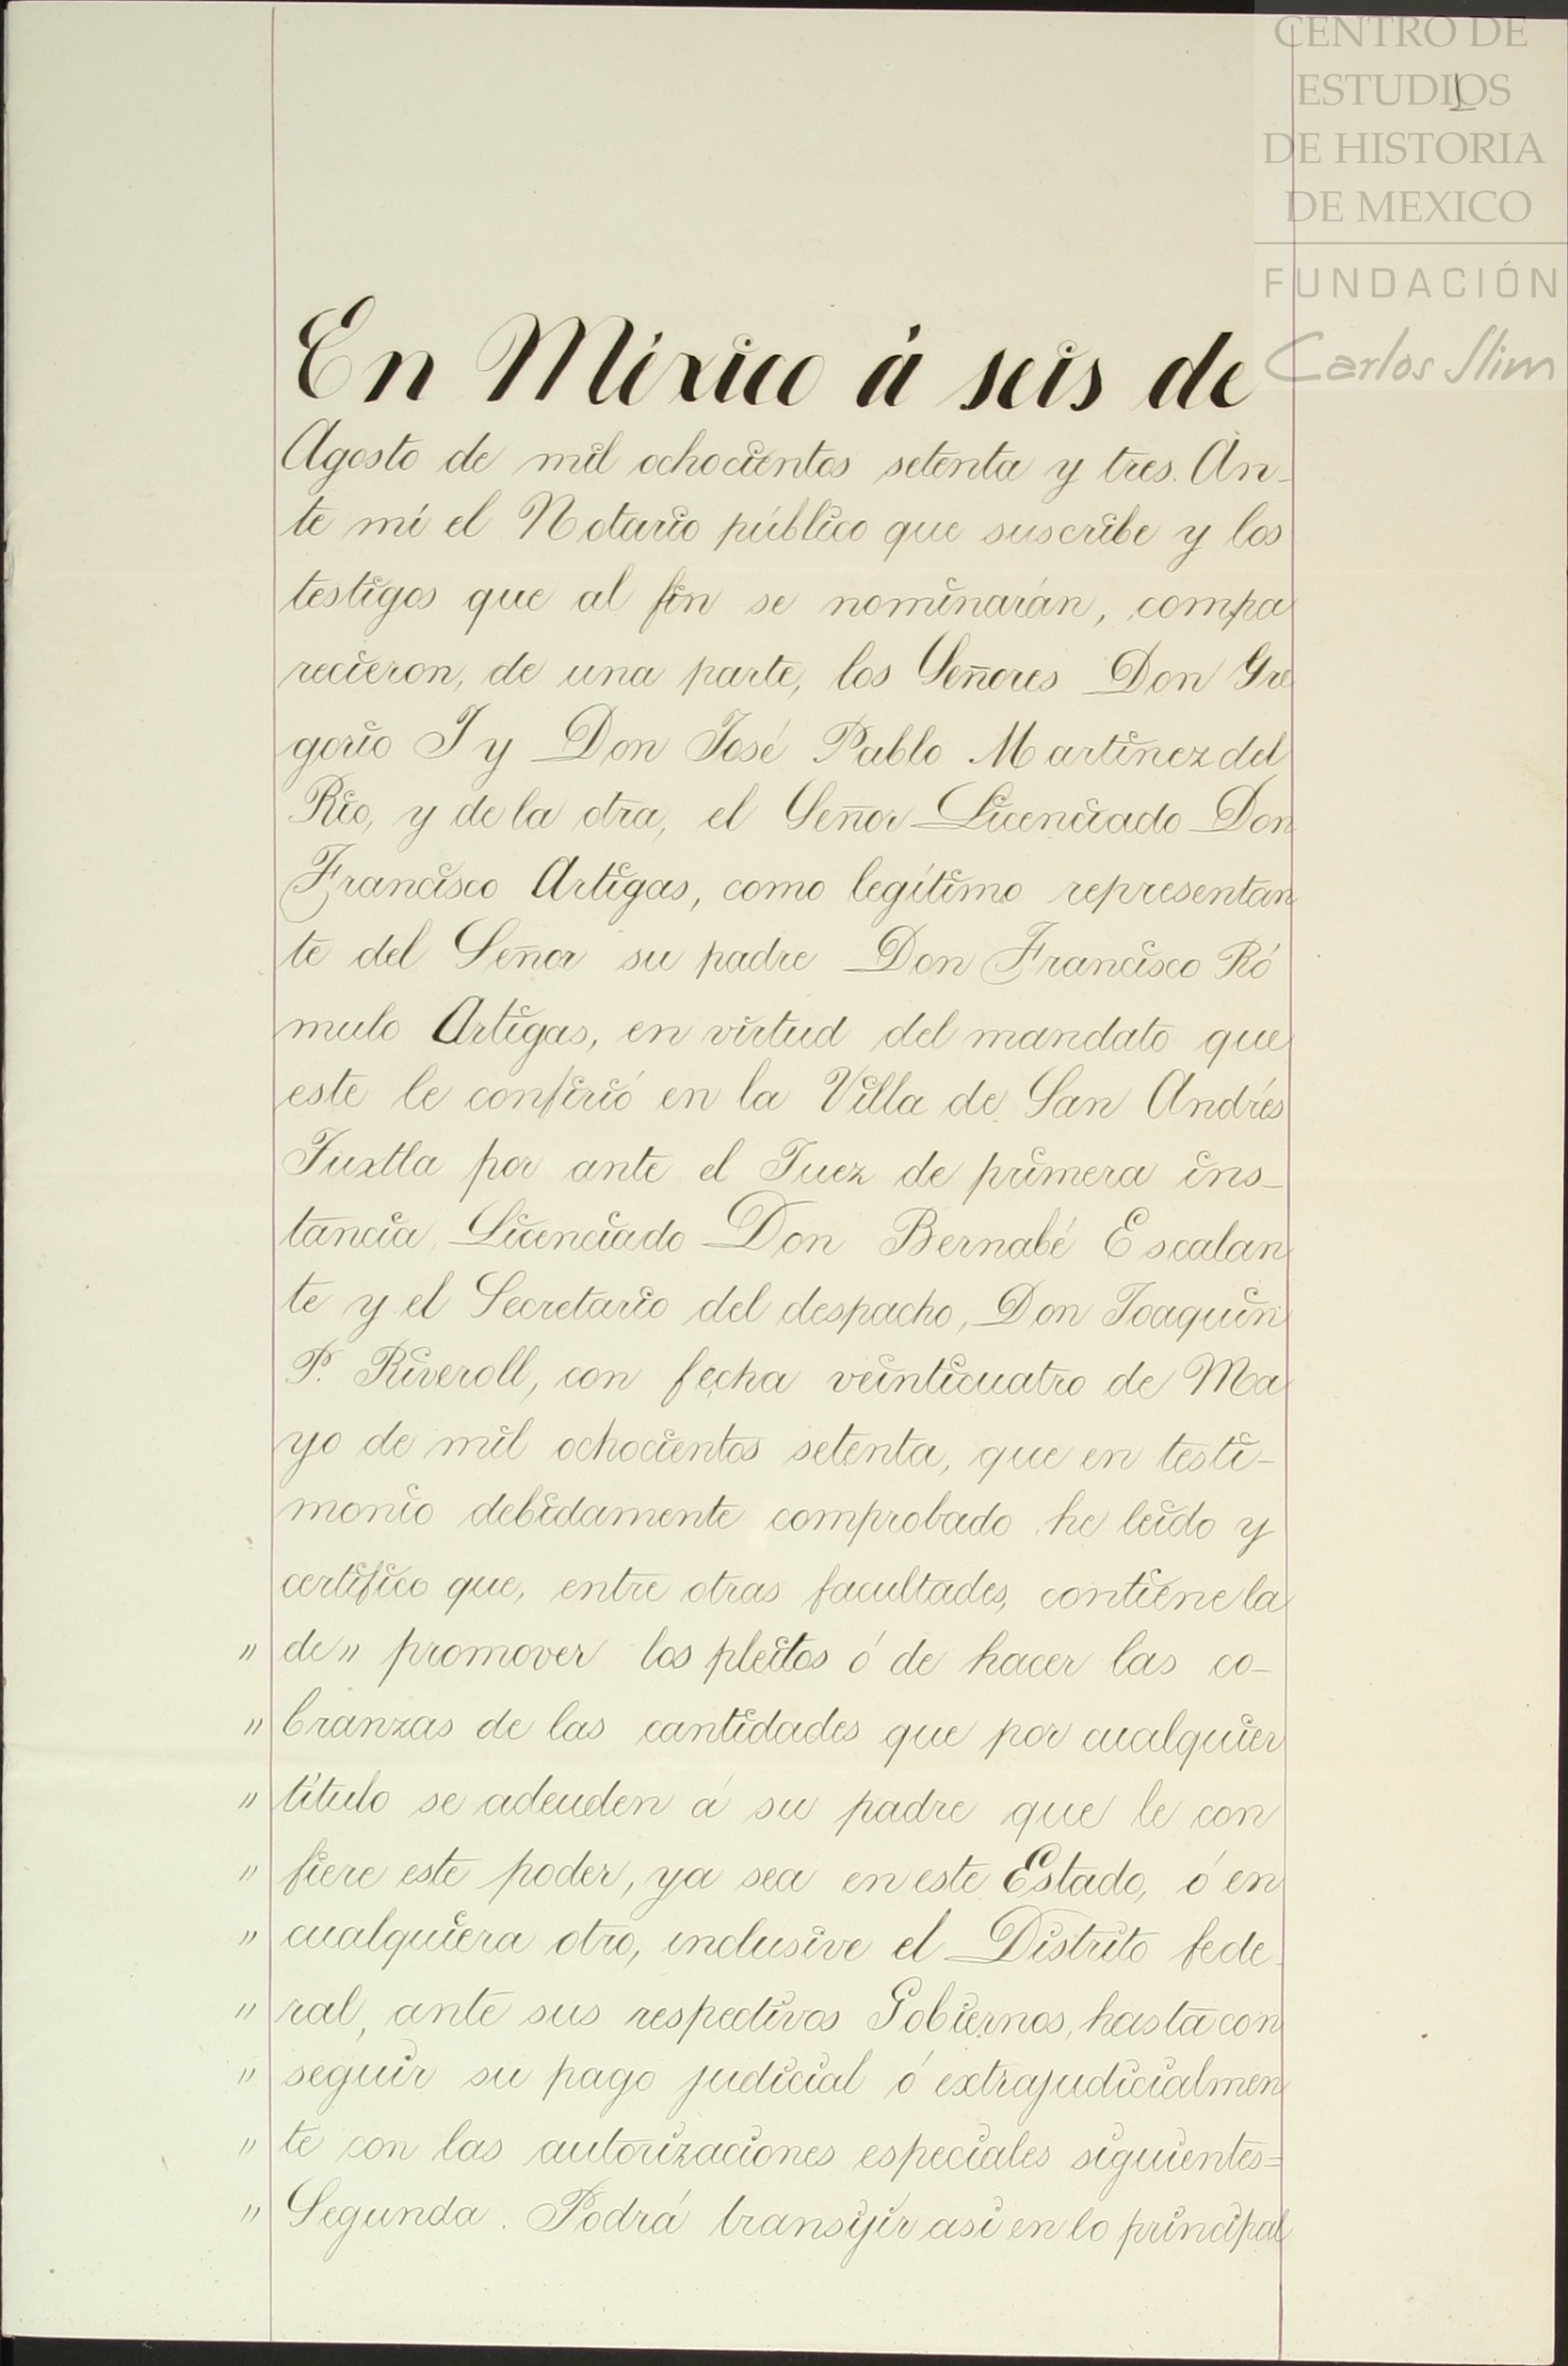 CENTRO DE
ESTUDIOS
DE HISTORIA
DE MEXICO
FUNDACIÓN
Carlos Slim
1
En México á seis de
Agosto de mil ochocientos setenta y tres. An-
te mí el Notario público que suscribe y los
testigos que al fin se nominarán, compa
recieron, de una parte, los Señores Don Gre
gorio J y Don José Pablo Martinez del
Rio, y de la otra, el Señor Licenciado Don
Francisco Artigas, como legítimo representan
te del Señor su padre Don Francisco Ró
mulo Artigas, en virtud del mandato que
este le confirió en la Villa de San Andrés
Tuxtla por ante el Juez de primera ins-
tancia, Licenciado Don Bernabé Escalan
te y el Secretario del despacho, Don Joaquin
P. Riveroll, con fecha veinticuatro de Ma
yo de mil ochocientos setenta, que en testi-
monio debidamente comprobado he leido y
certifico que, entre otras facultades, contiene la
" de " promover los pleitos ó de hacer las co-
" branzas de las cantidades que por cualquier
" título se adeuden á su padre que le con
" fiere este poder, ya sea en este Estado, ó en
" cualquiera otro, inclusive el Distrito fede-
" ral, ante sus respectivos Gobiernos, hasta con
" seguir su pago judicial ó extrajudicialmen
" te con las autorizaciones especiales siguientes=
" Segunda. Podrá transijir asi en lo principal